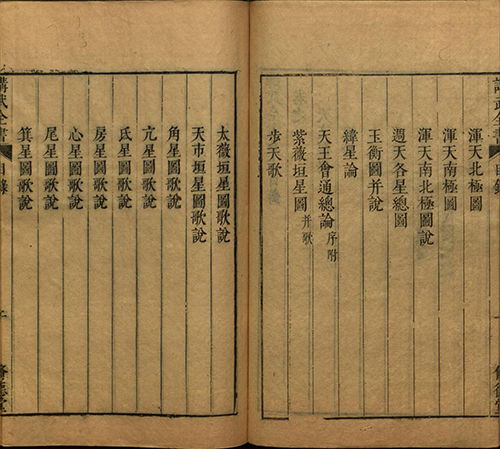 渾天北極圖
渾天南極圖
渾天南北極圖說
週天各星總圖
玉衡圖并說
緯星論
天王會通總論序附
紫薇垣星圖并歌
步天歌
太薇垣星圖歌說
天市垣星圖歌說
角星圖歌說
亢星圖歌說
氐星圖歌說
房星圖歌說
心星圖歌說
尾星圖歌說
箕星圖歌說
講武全書
目錄